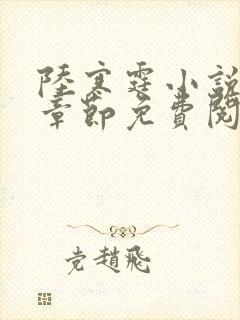 陸寒霆小說
章節免費閱
党趙飛